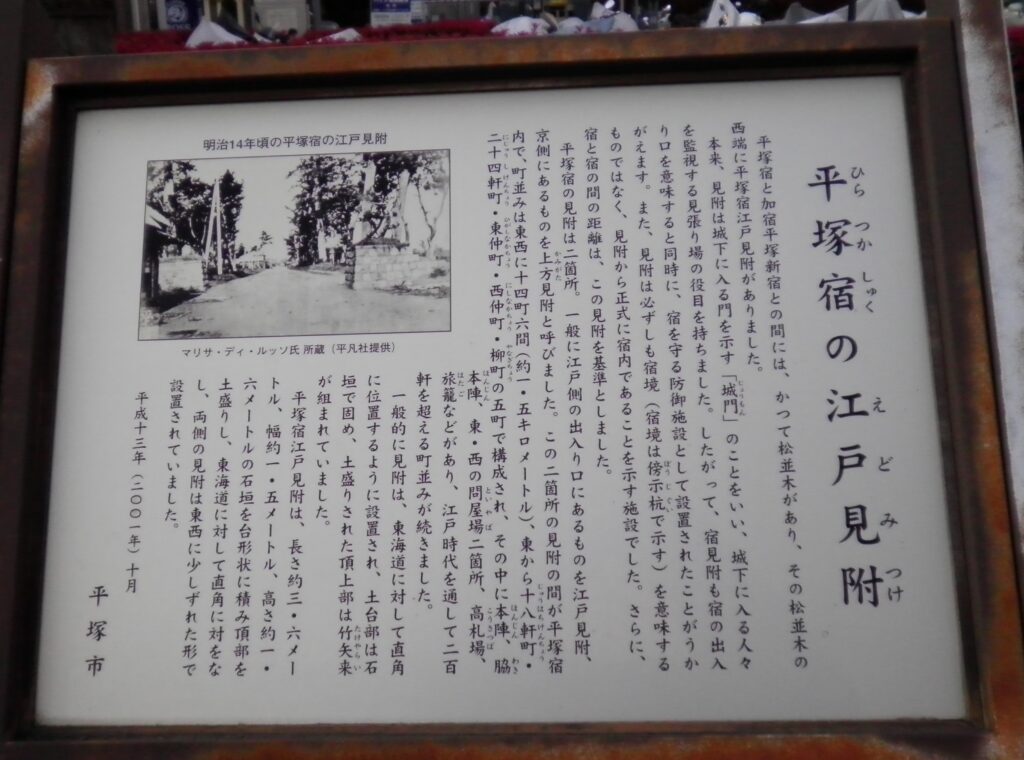 平塚宿の江戸見附
ひらつかしゅく えどみつけ
平塚宿と加宿平塚新宿との間には、かつて松並木があり、その松並木の
西端に平塚宿江戸見附がありました。
本来、見附は城下に入る門を示す「城門」のことをいい、城下に入る人々
じょうもん
を監視する見張り場の役目を持ちました。したがって、宿見附も宿の出入
り口を意味すると同時に、宿を守る防御施設として設置されたことがうか
がえます。また、見附は必ずしも宿境(宿境は傍示杭で示す)を意味する
ぼうじぐい
ものではなく、見附から正式に宿内であることを示す施設でした。さらに、
宿と宿の間の距離は、この見附を基準としました。
平塚宿の見附は二箇所。一般に江戸側の出入り口にあるものを江戸見附、
京側にあるものを上方見附と呼びました。この二箇所の見附の間が平塚宿
かみがた
内で、町並みは東西に十四町六間(約一・五キロメートル)、東から十八軒町・
じゅうはちけんちょう
二十四軒町・東仲町・西仲町・柳町の五町で構成され、その中に本陣、脇
にじゅうしけんちょう ひがしなかちょう にしなかちょう やなぎちょう ほんじん わき
本陣、東・西の問屋場二箇所、高札場、
ほんじん といやば こうさつば
旅籠などがあり、江戸時代を通して二百
はたご
軒を超える町並みが続きました。
一般的に見附は、東海道に対して直角
に位置するように設置され、土台部は石
垣で固め、土盛りされた頂上部は竹矢来
たけやらい
が組まれていました。
平塚宿江戸見附は、長さ約三・六メー
トル、幅約一・五メートル、高さ約一・
六メートルの石垣を台形状に積み頂部を
土盛りし、東海道に対して直角に対をな
し、両側の見附は東西に少しずれた形で
設置されていました。
平成十三年(二〇〇一年)十月
平塚市
明治14年頃の平塚宿の江戸見附
マリサ・ディ・ルッソ氏 所蔵(平凡社提供)